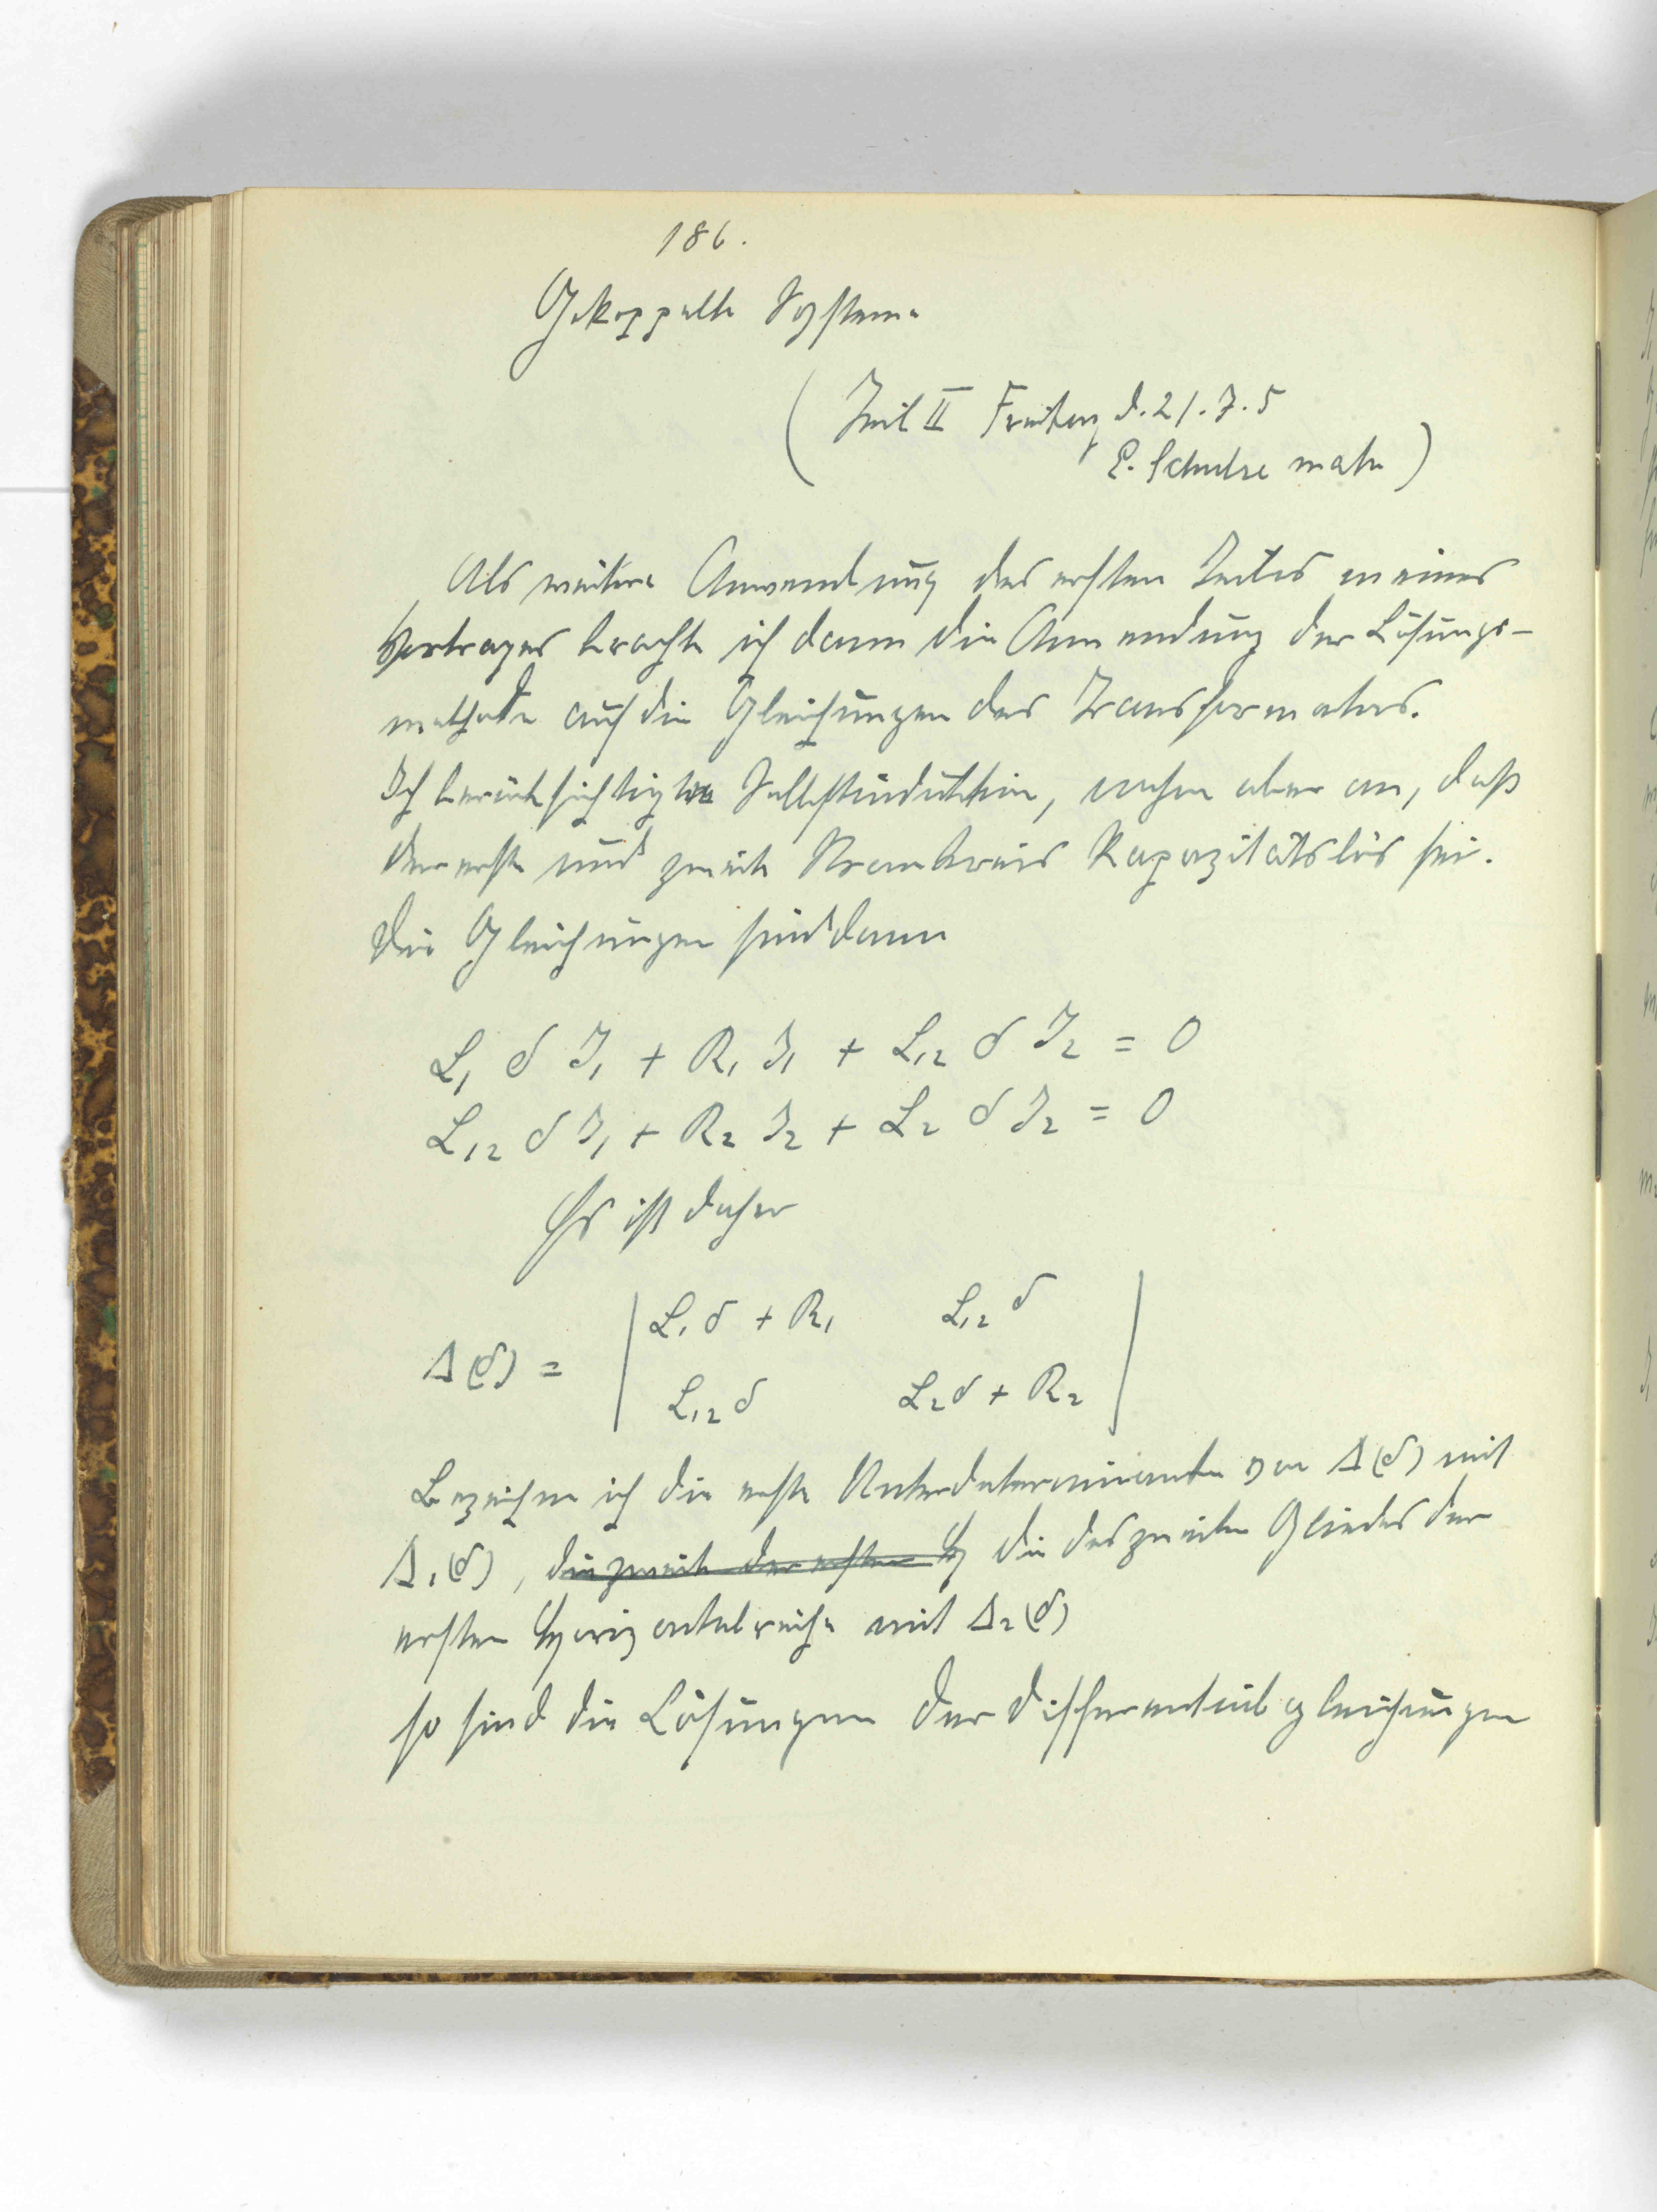 186.
Gekoppelte Systeme
(Teil II Freitag d. 21.7.5
E. Schulze math)
Als weitere Anwendung des ersten Teiles meines
Vortrages brachte ich dann die Anwendung der Lösungs-
methode auf die Gleichungen des Transformators.
Ich berücksichtigte Selbstinduktion, nahm aber an, daß
der erste und zweite Stromkreis kapazitätslos sei.
Die Gleichungen sind dann
L₁ δ J₁ + R₁ J₁ + L₁₂ δ J₂ = 0
L₁₂ δ J₁ + R₂ J₂ + L₂ δ J₂ = 0
Es ist daher
Δ(δ) = | L₁δ + R₁ L₁₂δ |
| L₁₂δ L₂δ + R₂ |
Bezeichne ich die erste Unterdeterminante von Δ(δ) mit
Δ₁(δ), die zweite der ersten H die des zweiten Gliedes der
ersten Horizontalreihe mit Δ₂(δ)
so sind die Lösungen der Differentialgleichungen